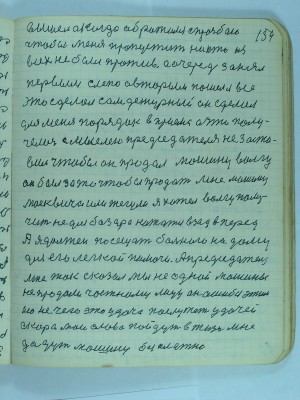 вышел а когда обратился с просьбою
157
чтобы меня пропустить никто из
них не были против, а очеред занял
первым слепо авторитет пошол все
это сделал сам дежурный он сделал
для меня порядок в приёма а то полу-
чился смыслом председателя не захо-
чтобы он продал машину волгу
он был за то чтобы продат мне машину
москвича или жегуля я хотел волгу полу-
чит не для базара катати взад в перед
А я должен посещат больного на дому
для его легкой помочи. А председатель
мне так сказал мы не одной машины
не продали частному лицу
но не чего это удача послужит удачей
скора мои слова пойдут в тиш мне
дадут машину бесплатно